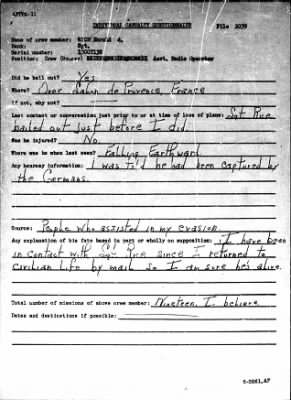 CASUALTY QUESTIONNAIRE File 2079
Name of crew member:
Rank: Sgt.
Serial number:
Position: Crew (Bomber) Asst. Radio Operator
Did he bail out? Yes
Where? Over Salon de Provence, France
If not, why not?
Last contact or conversation just prior to or at time of loss of plane: Sgt Rue
bailed out just before I did.
Was he injured? No
Where was he when last seen? Falling Earthward
Any hearsay information: I was told he had been captured by
the Germans.
Source: People who assisted in my evasion.
Any explanation of his fate based in part or wholly on supposition: I have been
in contact with Sgt Rue since I returned to
Civilian Life by mail so I am sure he's alive.
Total number of missions of above crew member: Nineteen, I believe
Dates and destinations if possible: